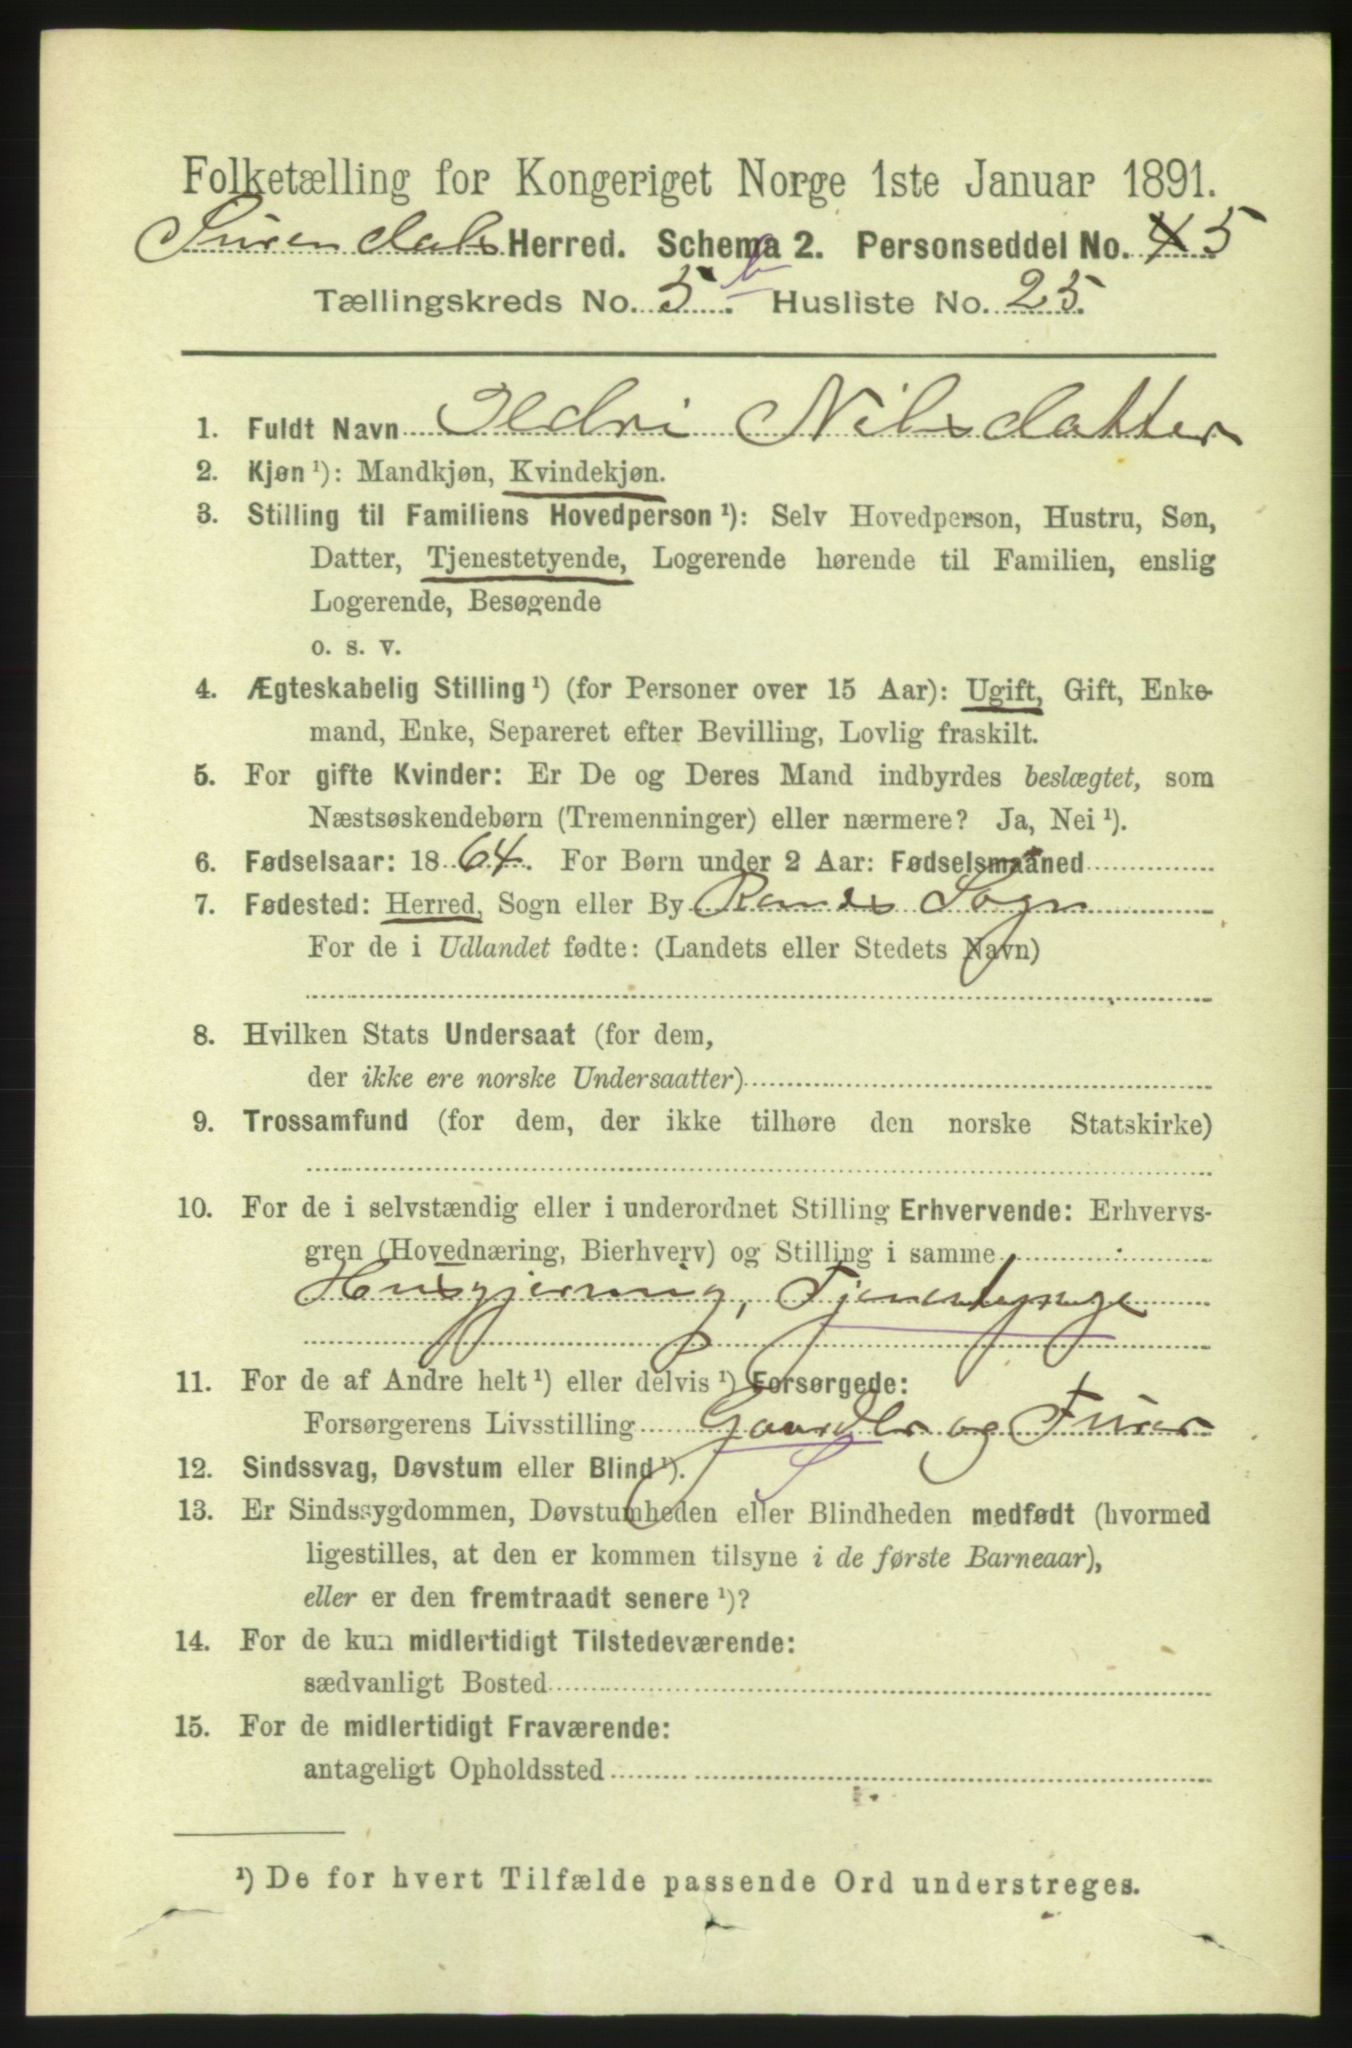 Folketælling for Kongeriget Norge 1ste Januar 1891.
Surendals Herred. Schema 2. Personseddel No. 5
Tællingskreds No. 5 b. Husliste No. 25.
1. Fuldt Navn Ildri Nilsdatter
2. Kjøn ¹): Mandkjøn, Kvindekjøn.
3. Stilling til Familiens Hovedperson ¹): Selv Hovedperson, Hustru, Søn,
Datter, Tjenestetyende, Logerende hørende til Familien, enslig
Logerende, Besøgende
o. s. v.
4. Ægteskabelig Stilling ¹) (for Personer over 15 Aar): Ugift, Gift, Enke-
mand, Enke, Separeret efter Bevilling, Lovlig fraskilt.
5. For gifte Kvinder: Er De og Deres Mand indbyrdes beslægtet, som
Næstsøskendebørn (Tremenninger) eller nærmere? Ja, Nei ¹).
6. Fødselsaar: 1864. For Børn under 2 Aar: Fødselsmaaned
7. Fødested: Herred, Sogn eller By Ranes Sogn
For de i Udlandet fødte: (Landets eller Stedets Navn)
8. Hvilken Stats Undersaat (for dem,
der ikke ere norske Undersaatter)
9. Trossamfund (for dem, der ikke tilhøre den norske Statskirke)
10. For de i selvstændig eller i underordnet Stilling Erhvervende: Erhvervs-
gren (Hovednæring, Bierhverv) og Stilling i samme
Husgjerning,
11. For de af Andre helt ¹) eller delvis ¹) Forsørgede:
Forsørgerens Livsstilling Gaardbr og
12. Sindssvag, Døvstum eller Blind ¹).
13. Er Sindssygdommen, Døvstumheden eller Blindheden medfødt (hvormed
ligestilles, at den er kommen tilsyne i de første Barneaar),
eller er den fremtraadt senere ¹)?
14. For de kun midlertidigt Tilstedeværende:
sædvanligt Bosted
15. For de midlertidigt Fraværende:
antageligt Opholdssted
¹) De for hvert Tilfælde passende Ord understreges.